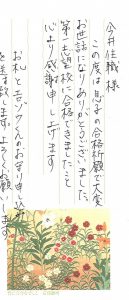 今井住職様
この度は息子の合格祈願で大変
お世話になりありがとうございました
第一志望校に合格できましたこと
心より感謝申し上げます
お札とエンゼルくんのお守り
送り致します よろしくお願いします